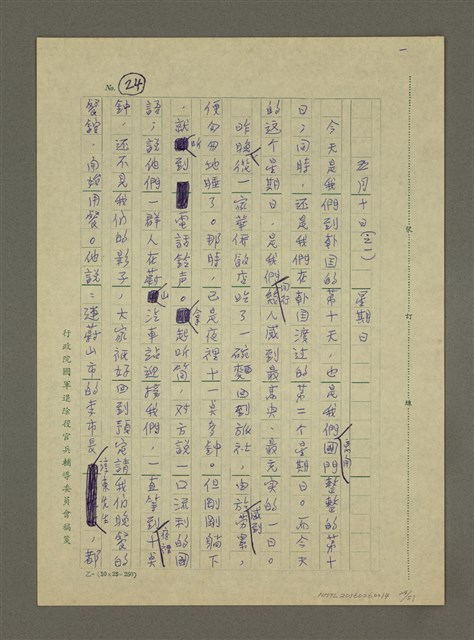 No. 24
五月十日(之一) 星期日
今天是我們到韓国的第十天,也是我們離開國門整整的第十
日;同時,还是我們在韓国渡过的第二个星期日。而今天
的这个星期日,是我們同行感到最高央、最充实的一日。
昨晚從一家華僑飯店吃了一碗麵回到旅社,由於感到劳累,
便匆匆地睡了。那時,已是夜裡十一点多钟。但剛剛躺下
,就聽到電話鈴声。拿起听筒,对方說一口流利的國
語;說他們一群人在蔚山汽車站迎接我們,一直等到夜裡十点
钟,还不見我们的影子,大家祇好回到預定請我们晚餐的
餐館,開始用餐。他說:連蔚山市的李市長先生,都
行政院國軍退除役官兵輔導委員會稿箋
裝 訂 線
乙-(20×25=2